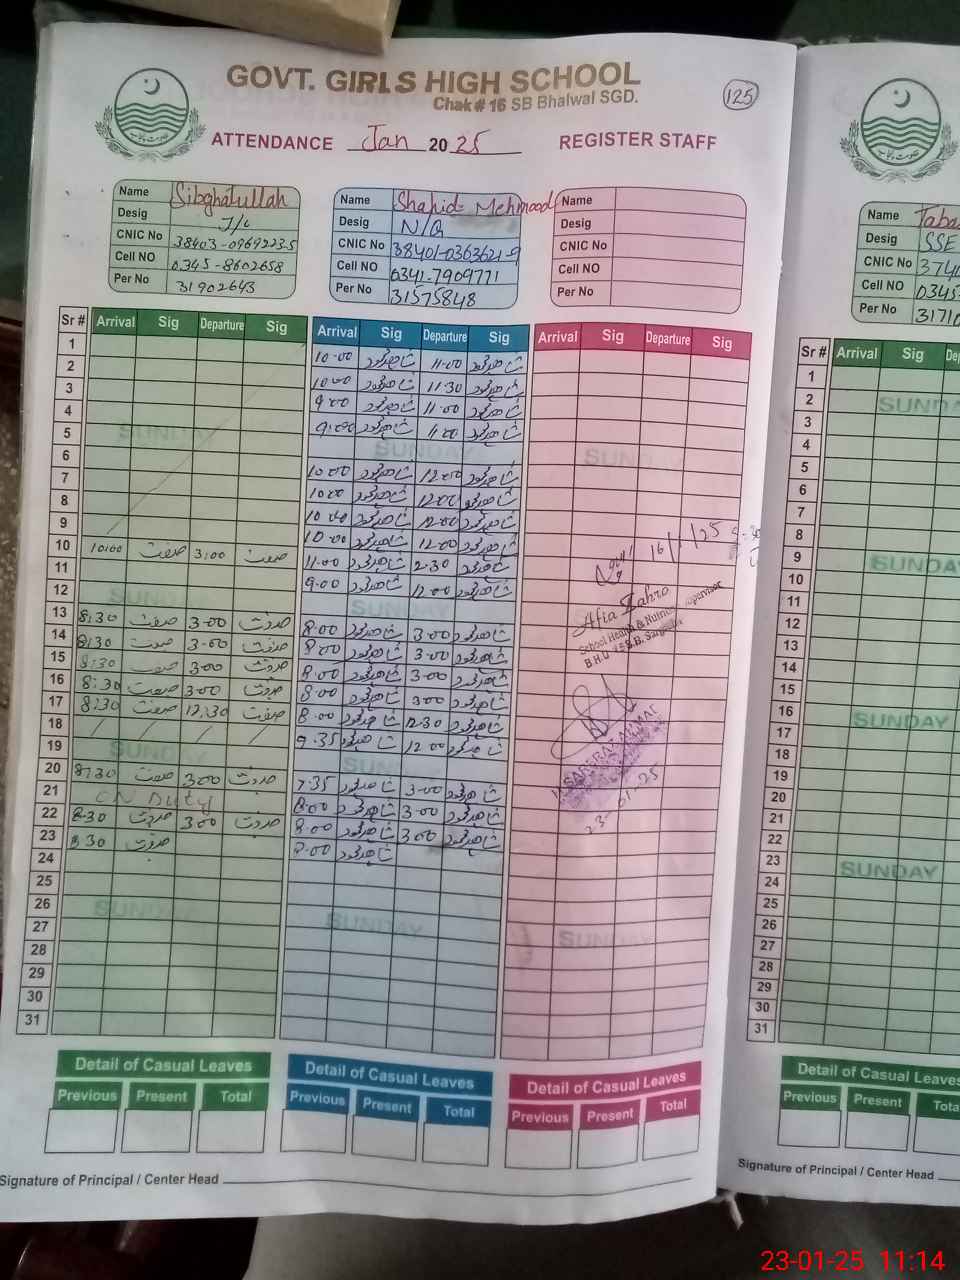 GOVT. GIRLS HIGH SCHOOL
Chak # 16 SB Bhalwal SGD.
125
ATTENDANCE Jan 2025 REGISTER STAFF
Name Sibghatullah
Desig J/C
CNIC No 38403-0969223-5
Cell NO 0345-8602658
Per No 31902643
Name Shahid Mehmood
Desig N/Q
CNIC No 38401-0363621-9
Cell NO 0341-7909771
Per No 31575848
Name
Desig
CNIC No
Cell NO
Per No
Name
Desig SSE
CNIC No
Cell NO 0345-
Per No
Sr # Arrival Sig Departure Sig Arrival Sig Departure Sig Arrival Sig Departure Sig
1 10-00 شاہد محمود 11-00 شاہد محمود
2 10-00 شاہد محمود 11-30 شاہد محمود
3 9-00 شاہد محمود 11-00 شاہد محمود
4 9-00 شاہد محمود 11-00 شاہد محمود
5 SUNDAY SUNDAY SUNDAY
6 10-00 شاہد محمود 12-00 شاہد محمود
7 10-00 شاہد محمود 12-00 شاہد محمود
8 10-00 شاہد محمود 12-00 شاہد محمود
9 10-00 شاہد محمود 12-00 شاہد محمود
10 10:00 3:00 11-00 شاہد محمود 2-30 شاہد محمود
11 9-00 شاہد محمود 12-00 شاہد محمود
12 SUNDAY SUNDAY
13 8:30 3-00 8-00 شاہد محمود 3-00 شاہد محمود
14 8:30 3-00 8-00 شاہد محمود 3-00 شاہد محمود
15 8:30 3-00 8-00 شاہد محمود 3-00 شاہد محمود
16 8:30 3-00 8-00 شاہد محمود 3-00 شاہد محمود
17 8:30 12:30 8-00 شاہد محمود 12-30 شاہد محمود
18 9-35 شاہد محمود 12-00 شاہد محمود
19 SUNDAY SUNDAY
20 8:30 3-00 7-35 شاہد محمود 3-00 شاہد محمود
21 ON Duty 8-00 شاہد محمود 3-00 شاہد محمود
22 8-30 3-00 8-00 شاہد محمود 3-00 شاہد محمود
23 8 30 8-00 شاہد محمود
24
25
26 SUNDAY SUNDAY SUNDAY
27
28
29
30
31
16/1/25
Afia Zahro
School Health & Nutrition Supervisor
B.H.U
23-01-25
Detail of Casual Leaves Detail of Casual Leaves Detail of Casual Leaves
Previous Present Total Previous Present Total Previous Present Total
Signature of Principal / Center Head
Sr # Arrival Sig
1
2 SUNDAY
3
4
5
6
7
8
9 SUNDAY
10
11
12
13
14
15
16 SUNDAY
17
18
19
20
21
22
23 SUNDAY
24
25
26
27
28
29
30
31
Detail of Casual Leaves
Previous Present Total
Signature of Principal / Center Head
23-01-25 11:14